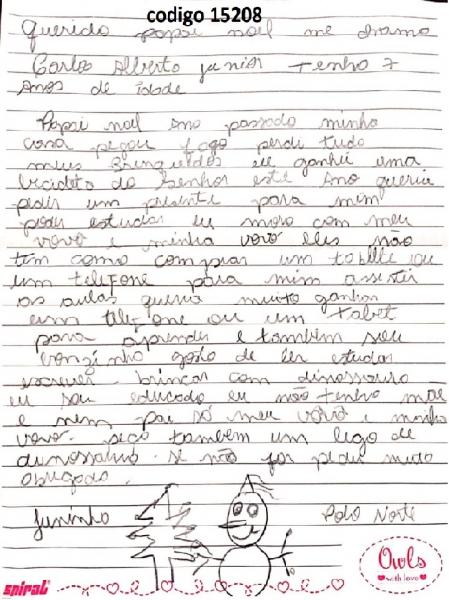 codigo 15208
Querido papai noel me chamo
Carlos Alberto junior tenho 7
Anos de idade
Papai noel Ano passado minha
casa pegou fogo perdi tudo
meus Brinquedos eu ganhei uma
bicicleta do senhor este Ano queria
pedir um presente para mim
poder estudar eu moro com meu
vovô e minha vovó eles não
tem como comprar um tablite ou
um telefone para mim assistir
as aulas queria muito ganhar
um telefone ou um tablet
para aprender e também sou
bonzinho gosto de ler estudar
escrever brincar com dinossauro
eu sou educado eu não tenho mãe
e nem pai só meu vovô e minha
vovó. peço também um lego de
dinossauro. se não for pedir muito
obrigado.
Juninho
Polo Norte
spiral
Owls
with love